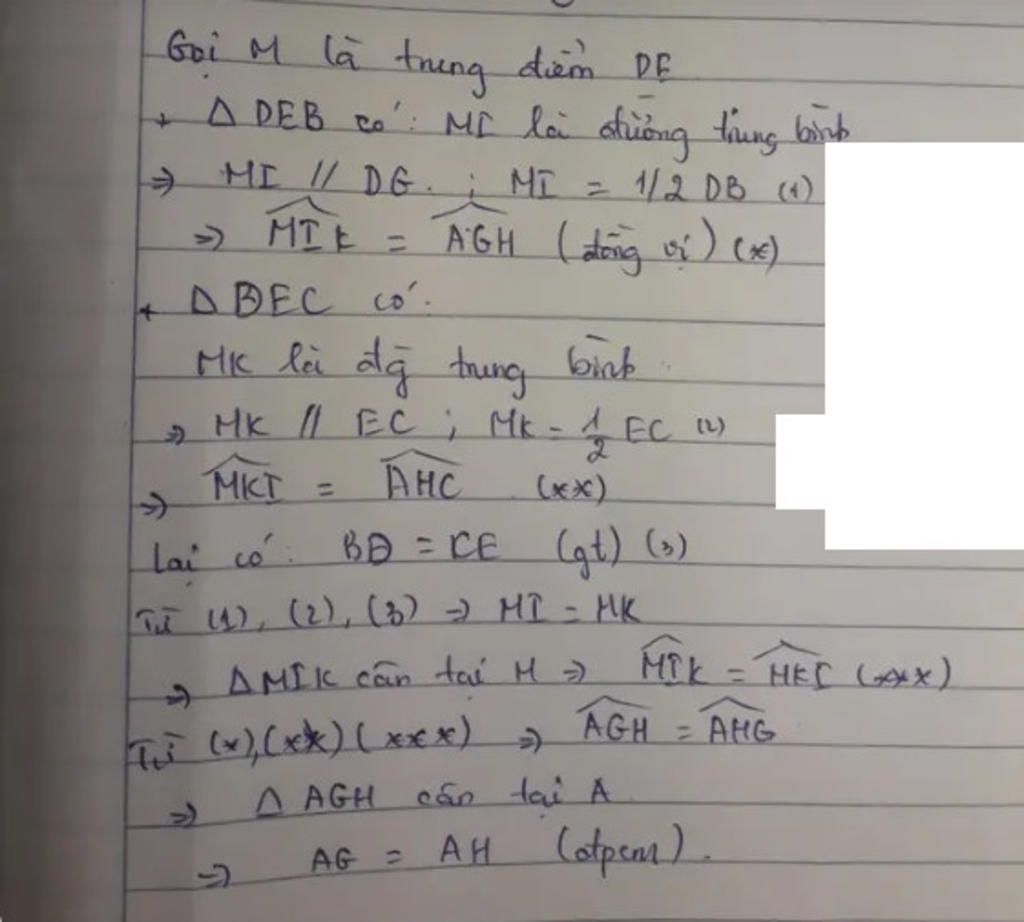 Gọi M là trung điểm DE
+ Δ DEB có: MI là đường trung bình
=> MI // DG. ; MI = 1/2 DB (1)
=> \widehat{MIK} = \widehat{AGH} (đồng vị) (*)
+ Δ BEC có:
MK là đg trung bình
=> MK // EC ; MK = \frac{1}{2} EC (2)
=> \widehat{MKI} = \widehat{AHC} (**)
Lại có: BD = CE (gt) (3)
Từ (1), (2), (3) => MI = MK
=> ΔMIK cân tại M => \widehat{MIK} = \widehat{MKI} (***)
Từ (*),(**) (***) => \widehat{AGH} = \widehat{AHG}
=> Δ AGH cân tại A
=> AG = AH (đpcm).